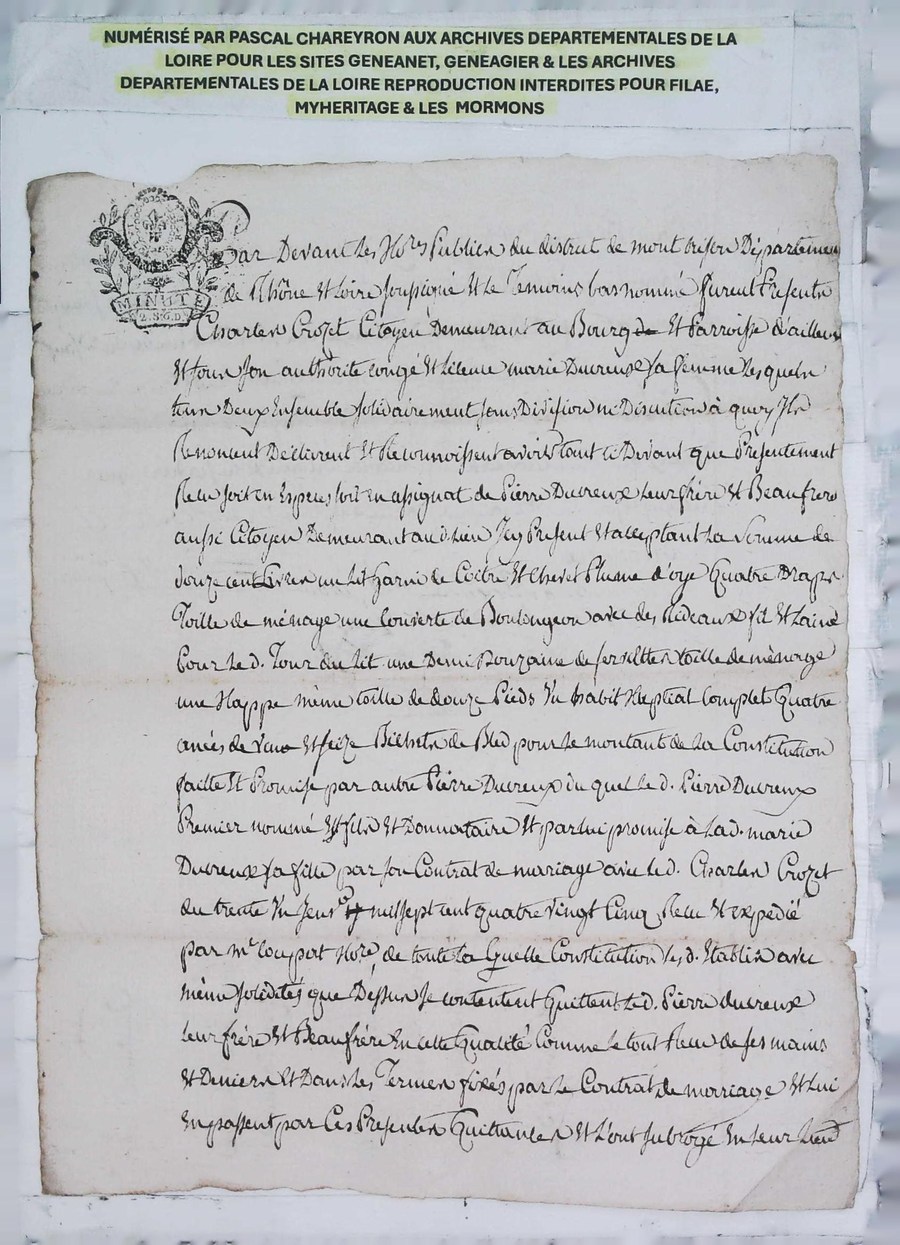 NUMÉRISÉ PAR PASCAL CHAREYRON AUX ARCHIVES DEPARTEMENTALES DE LA
LOIRE POUR LES SITES GENEANET, GENEAGIER & LES ARCHIVES
DEPARTEMENTALES DE LA LOIRE REPRODUCTION INTERDITES POUR FILAE,
MYHERITAGE & LES MORMONS
MINUTE
2.S.6.D.
Par Devant Les No.res Publics du district de mont brison Département
de Rhône Et Loire soussigné Et Le Temoins bas nommé furent Presents
Charles Crozet Citoyen Demeurant au Bourg de Et Parroisse d'ailleux
Et sous son authorite congé Et licence marie Ducreux sa femme Lesquels
tous Deux Ensemble solidairement sans Division ni Discution à quoy Ils
Renoncent Déclarent Et Reconnoissent avoir tant ci Devant que Presentement
Reçu soit en Especes soit en assignat de Pierre Ducreux Leur frére Et Beaufrere
aussi Citoyen Demeurant aud. Lieu Icy Present Et acceptant La Somme de
douze cent Livres un Lit Garni de Coêtre Et Chevet Plume d'oye Quatre Draps
Toille de ménage une Couverte de avec des Rideaux fil Et Laine
Pour Le d. Tour du Lit une Demi Douzaine de serviettes toille de ménage
une Nappe même toille de douze Pieds Un habit Nuptial Complet Quatre
anées de Et seize Bichets de Bled pour le montant de La Constitution
faitte Et Promise par autre Pierre Ducreux du quel Le d. Pierre Ducreux
Premier nommé Est fils Et Donnataire Et par lui promise à La d. marie
Ducreux sa fille par son Contrat de mariage avec Le d. Charles Crozet
du trente Un Janv.r mil sept cent quatre vingt Cinq Reçu Et expédié
par M.e No.re, de toute La Quelle Constitution Les d. Etablis avec
même solidités que Dessus se contentent Quittent Le d. Pierre ducreux
Leur frére Et Beaufrére En cette Qualité Comme le tout Reçu de ses mains
Et Deniers Et Dans Les Termes fixés par Le Contrat de mariage Et Lui
En passent par Ces Presentes Quittances Et L'ont subrogé En Leur Lieu